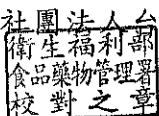 社團法人台
衛生福利部
食品藥物管理署
校對之章